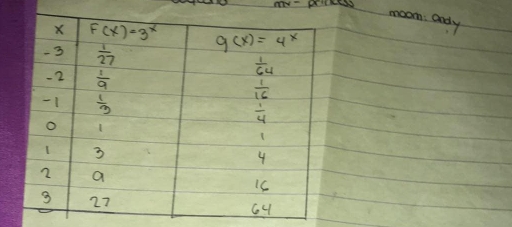 mr - princess
maam: andy
x F(x)=3ˣ g(x)= 4ˣ
-3 1/27 1/64
-2 1/9 1/16
-1 1/3 1/4
0 1 1
1 3 4
2 9 16
3 27 64